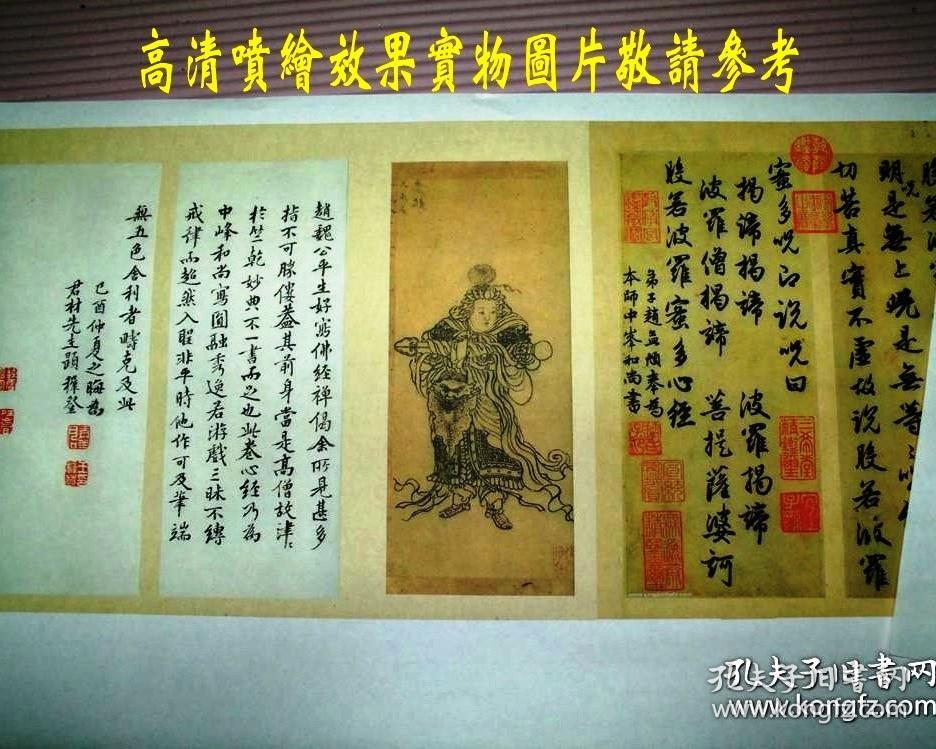 高清噴繪效果實物圖片敬請參考
明是無上呪是無等
切苦真實不虛故說般若波羅
蜜多呪即說呪曰
揭諦揭諦 波羅揭諦
波羅僧揭諦 菩提薩婆訶
般若波羅蜜多心經
弟子趙孟頫奉為
本師中峯和尚書
趙魏公平生好寫佛經禪偈余所見甚多
指不可勝僂蓋其前身當是高僧故津津
於竺乾妙典不一書而足也此卷心經乃為
中峰和尚寫圓融秀逸若游戲三昧不縛
戒律而超然入聖非平時他作可及筆端
無五色舍利者疇克及此
己酉仲夏之晦為
君材先生題稚登
孔夫子旧书网
www.kongfz.com